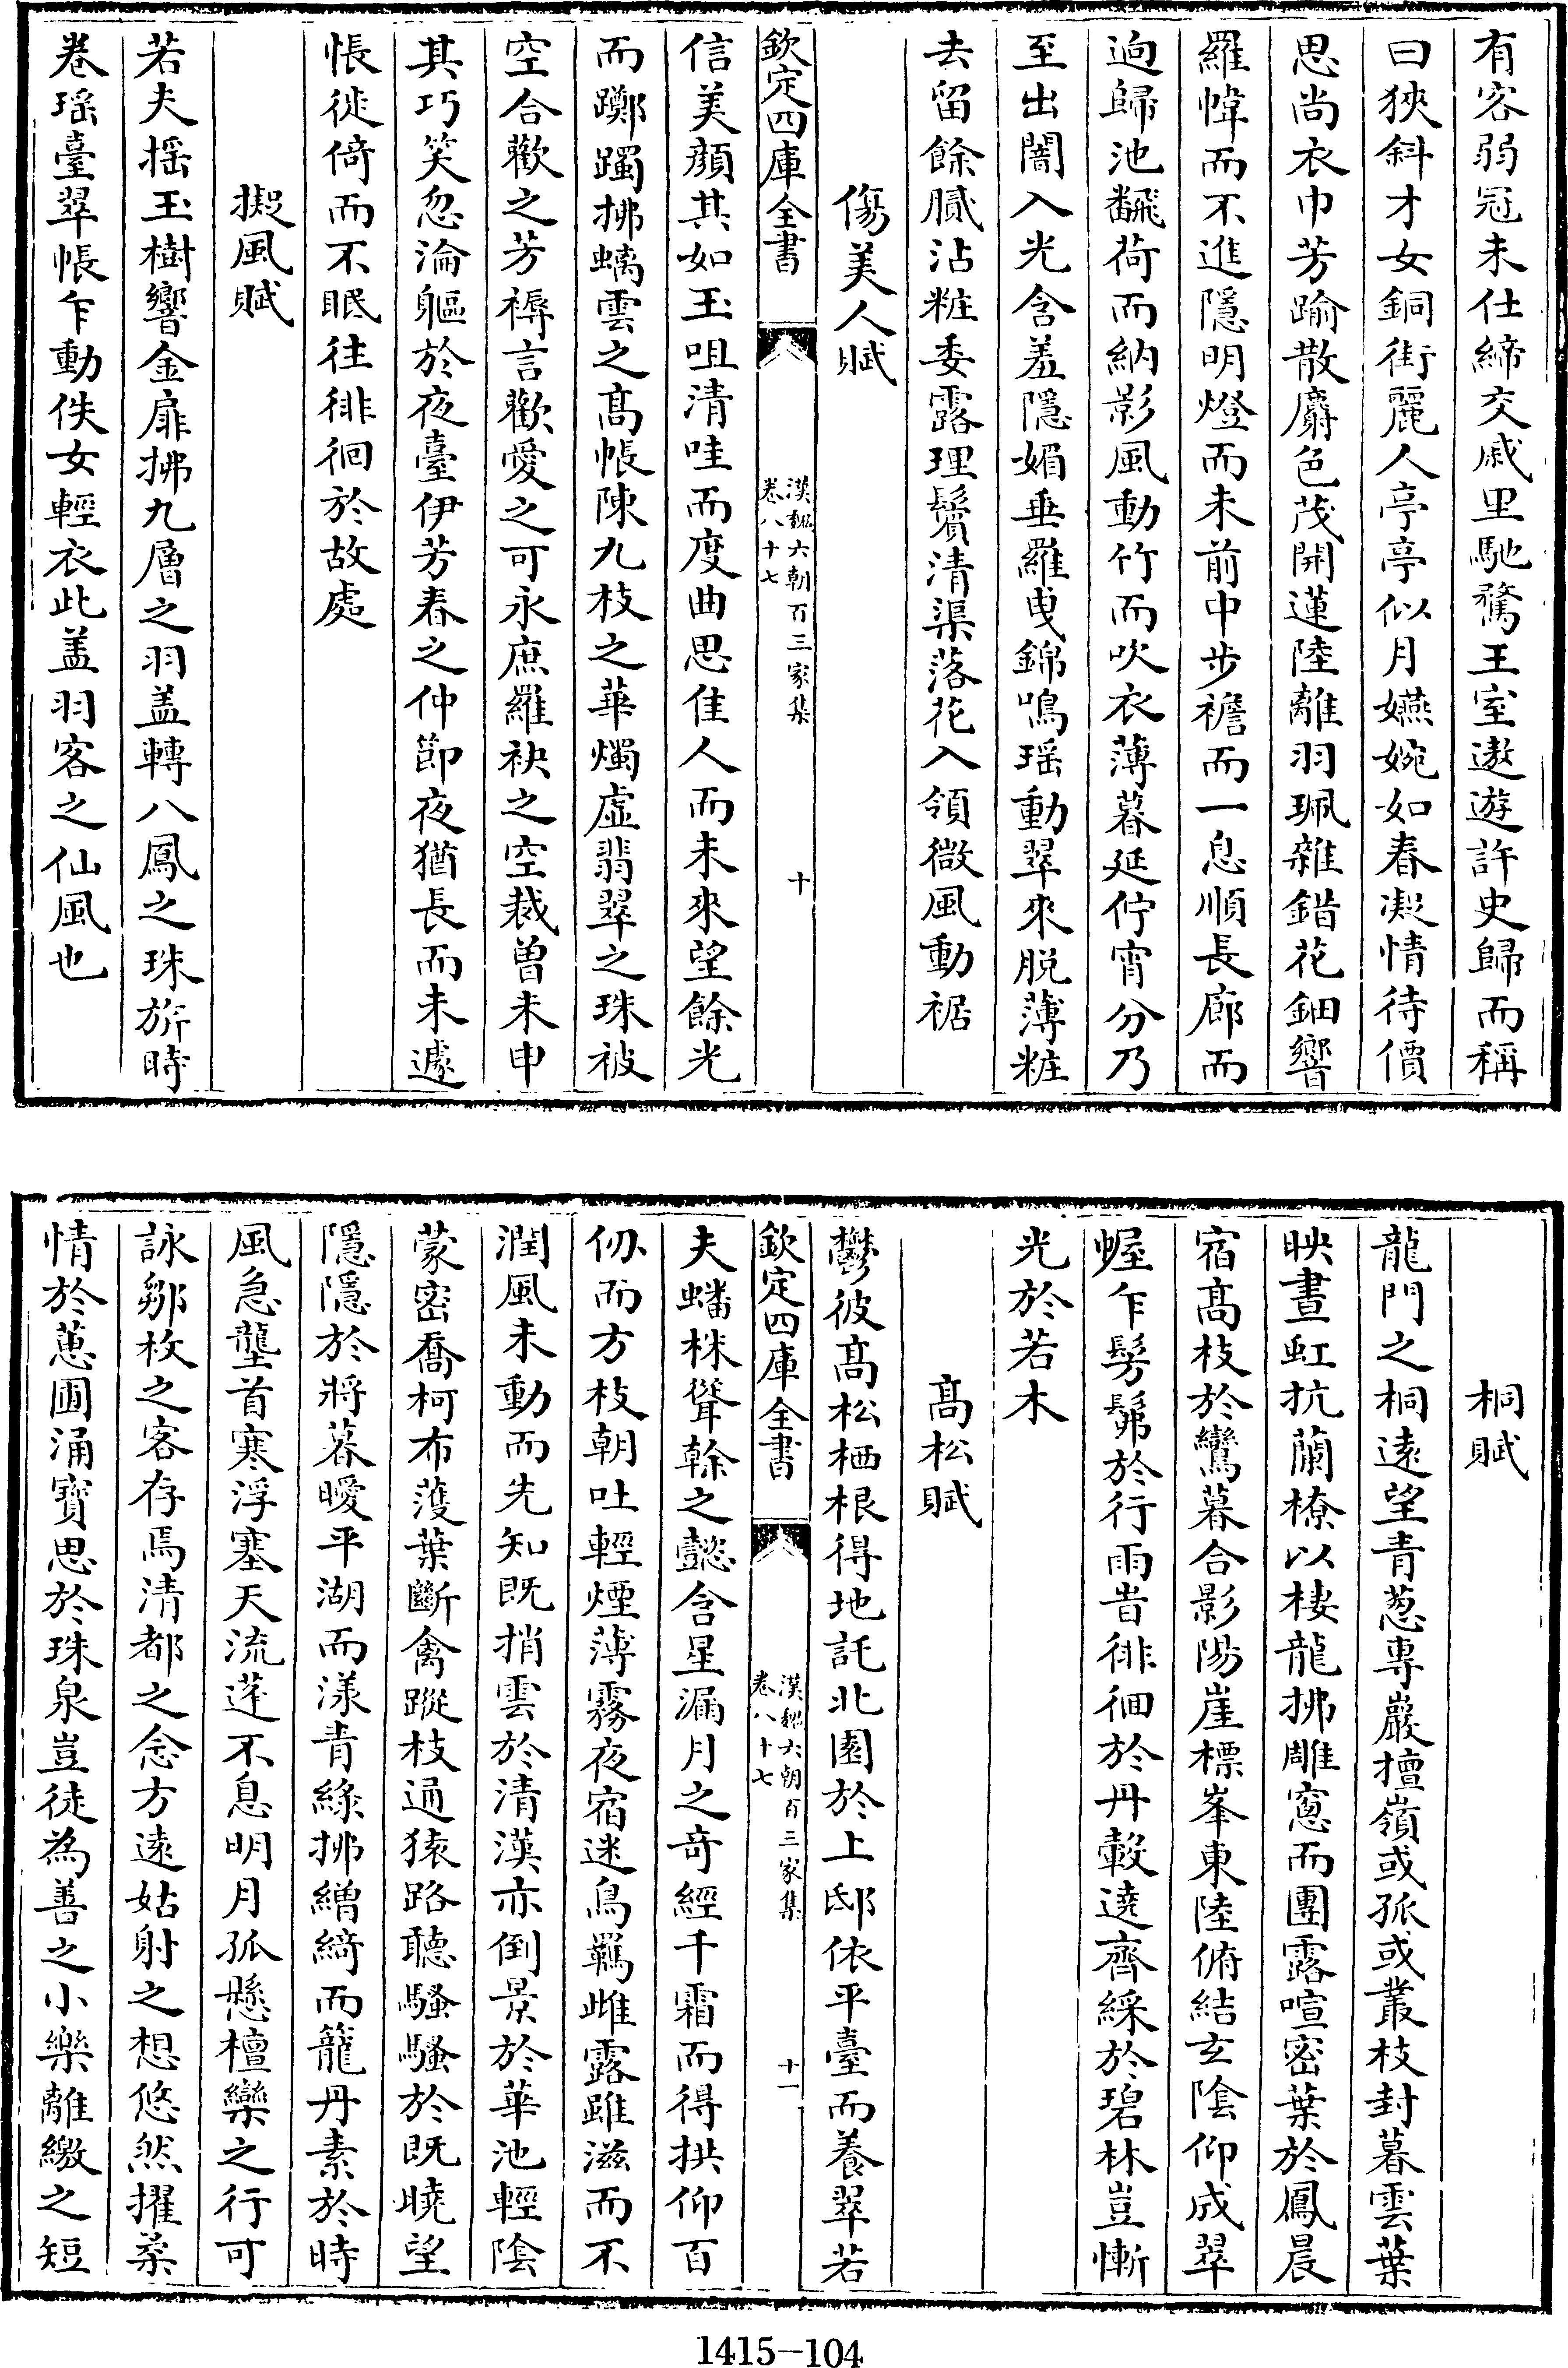 有客弱冠未仕締交戚里馳騖王室遨遊許史歸而稱
曰狹斜才女銅街麗人亭亭似月嬿婉如春凝情待價
思尚衣巾芳踰散麝色茂開蓮陸離羽珮雜錯花鈿響
羅幃而不進隱明燈而未前中步襜而一息順長廊而
逈歸池飜荷而納影風動竹而吹衣薄暮延佇宵分乃
至出闇入光含羞隱媚垂羅曵錦鳴瑶動翠來脱薄粧
去留餘膩沾粧委露理鬢清渠落花入領微風動裾
傷美人賦
欽定四庫全書
漢魏六朝百三家集
卷八十七
十
信美顔其如玉咀清哇而度曲思佳人而未來望餘光
而躑躅拂螭雲之髙帳陳九枝之華燭虛翡翠之珠被
空合歡之芳褥言歡愛之可永庶羅袂之空裁曾未申
其巧笑忽淪軀於夜臺伊芳春之仲節夜猶長而未遽
悵徙倚而不眠往徘徊於故處
擬風賦
若夫揺玉樹響金扉拂九層之羽盖轉八鳳之珠旂時
卷瑶臺翠帳乍動佚女輕衣此盖羽客之仙風也
桐賦
龍門之桐逺望青葱專巖擅嶺或孤或叢枝封暮雲葉
映晝虹抗蘭橑以棲龍拂雕窻而團露喧密葉於鳳晨
宿髙枝於鸞暮合影陽崖標峯東陸俯結玄隂仰成翠
幄乍髣髴於行雨昔徘徊於丹轂遶齊綵於碧林豈慚
光於若木
髙松賦
鬱彼髙松栖根得地託北園於上邸依平臺而養翠若
欽定四庫全書
漢魏六朝百三家集
卷八十七
十一
夫蟠株聳幹之懿含星漏月之奇經千霜而得拱仰百
仞而方枝朝吐輕煙薄霧夜宿迷鳥羈雌露雖滋而不
潤風未動而先知既捎雲於清漢亦倒景於華池輕隂
蒙密喬柯布蒦葉斷禽蹤枝通猿路聽騷騷於既曉望
隱隱於將暮曖平湖而漾青綠拂繒綺而籠丹素於時
風急壟首寒浮塞天流蓬不息明月孤懸檀欒之行可
詠鄒枚之客存焉清都之念方逺姑射之想悠然擢柔
情於蕙圃涌寳思於珠泉豈徒為善之小樂離繳之短
1415－104